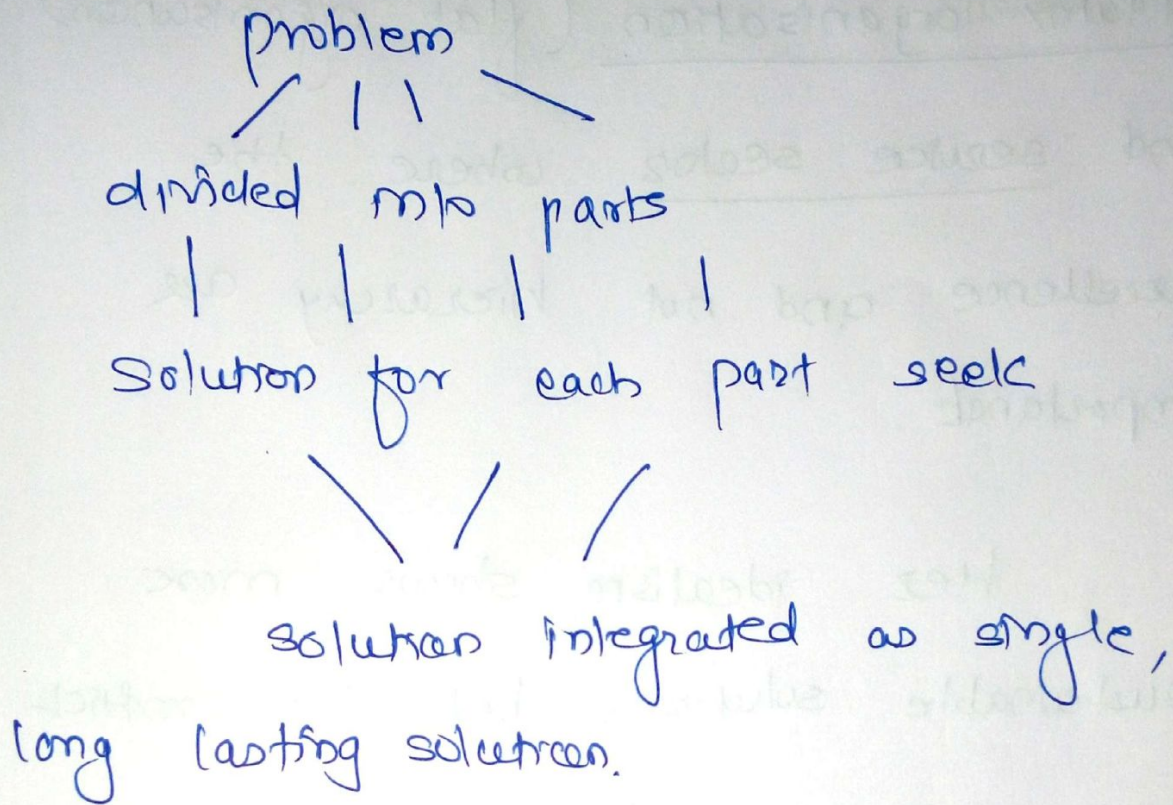 problem
divided into parts
solution for each part seek
solution integrated as single,
long lasting solution.